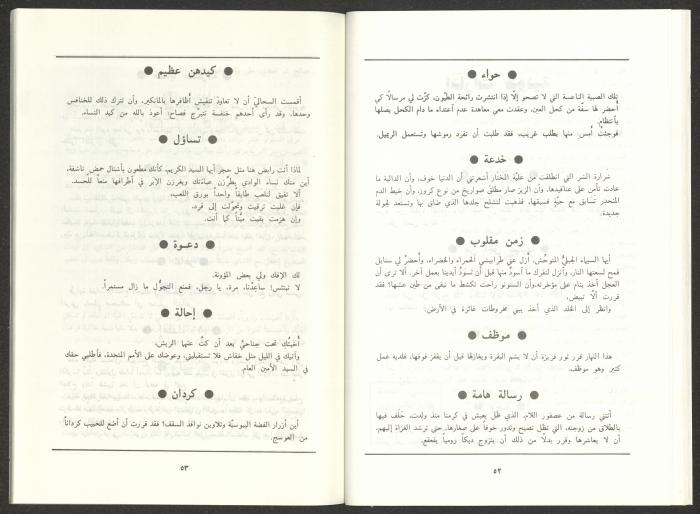 ● حواء ●
تلك الصبية الناعسة التي لا تصحو إلّا إذا انتشرت رائحة الطيّون، كرّت لي مرسالاً كي
أحضر لها سفّة من كحل العين، وعقدت معي معاهدة عدم أعتداء ما دام الكحل يصلها
بأنتظام.
فوجئتُ أمس منها بطلب غريب، فقد طلبت أن تفرد رموشها وتستعمل الريميل.
● خدعة ●
شرارة الشر التي انطلقت من عليّة المختار أشعرتني أن الدنيا خوف، وأن الدالية ما
عادت تأمن على عناقيدها، وأن الزيز صار مطلق صواريخ من نوع كروز، وأن خيط الدم
المنحدر تسابق مع حيّةٍ فسبقها، فذهبت لتشلح جلدها الذي ضاق بها وتستعد لجولة
جديدة.
● زمن مقلوب ●
أيها السيياء الجبليُّ المتوحّش، أزل عني طرابيشي الحمراء والخضراء، وأحضرْ لي سنابل
قمح لسعتها النار، وأنزل لنفرك ما أسودّ منها قبل أن تسودّ أيدينا بعمل آخر. ألا ترى أن
العجل أخذ ينام على مؤخرته، وأن السنونو راحت تكشط ما تبقى من طين عشها؟ فقد
قررت ألّا تبيض.
وانظر إلى الخلد الذي أخذ يبني مخروطات غائرة في الأرض.
● موظف ●
هذا النهار قرر ثور قريزة أن لا يشم البقرة ويغازلها قبل أن يقفز فوقها، فلديه عمل
كثير وهو موظف.
● رسالة هامة ●
أتتني رسالة من عصفور اللام، الذي ظل يعيش في كرمنا منذ ولدت، حَلف فيها
بالطلاق من زوجته، التي تظل تصيح وتدور خوفاً على صغارها، حتى ترشد الغزاة إليهم،
أن لا يعاشرها وقرر بدلًا من ذلك أن يتزوج ديكاً رومياً يفعفع.
٥٢
● كيدهن عظيم ●
أقسمت السحالي أن لا تعاود تنقيش أظافرها بالمانكير، وأن تترك ذلك للخنافس
وحدها، وقد رأى أحدهم خنفسة تتبرّج فصاح: أعوذ بالله من كيد النساء.
● تساؤل ●
لماذا أنت رابض هنا مثل حجر أيها السيد الكريم، كأنك مطعون بأشتال حمض ناشفة،
أين منك نساء الوادي يطرّزن عباءتك ويغرزن الإبر في أطرافها منعاً للحسد.
ألا تفيق لنلعب طابقاً واحداً بورق اللعب.
فإن غلبت ترقيت وتحولت إلى قرد.
وإن هزمت بقيت ميّتاً كما أنت.
● دعوة ●
لك الإفك ولي بعض المؤونة.
لا تبتئس! ساعِدْنا، مرة، يا رجل، فمنع التجوّل ما زال مستمراً.
● إحالة ●
أُخبئكِ تحت جناحيْ بعد أن كثّ عنها الريش.
وآتيك في الليل مثل خفاش فلا تستقبليني، وعوضك على الأمم المتحدة، فأطلبي حقك
في السيد الأمين العام.
● كردان ●
أين أزرار الفضة اليبوسيّة وتلاوين نوافذ السقف؟ فقد قررت أن أضع للحبيب كرداناً
من العوسج.
٥٣